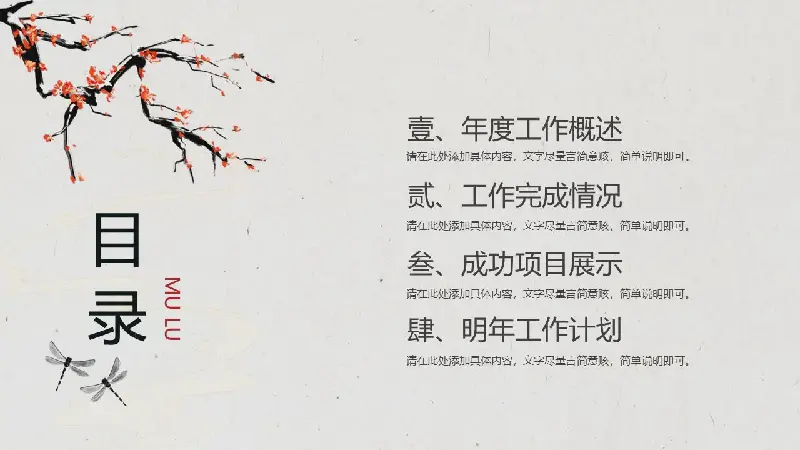 目录
MU LU
壹、年度工作概述
请在此处添加具体内容，文字尽量言简意赅，简单说明即可。
贰、工作完成情况
请在此处添加具体内容，文字尽量言简意赅，简单说明即可。
叁、成功项目展示
请在此处添加具体内容，文字尽量言简意赅，简单说明即可。
肆、明年工作计划
请在此处添加具体内容，文字尽量言简意赅，简单说明即可。